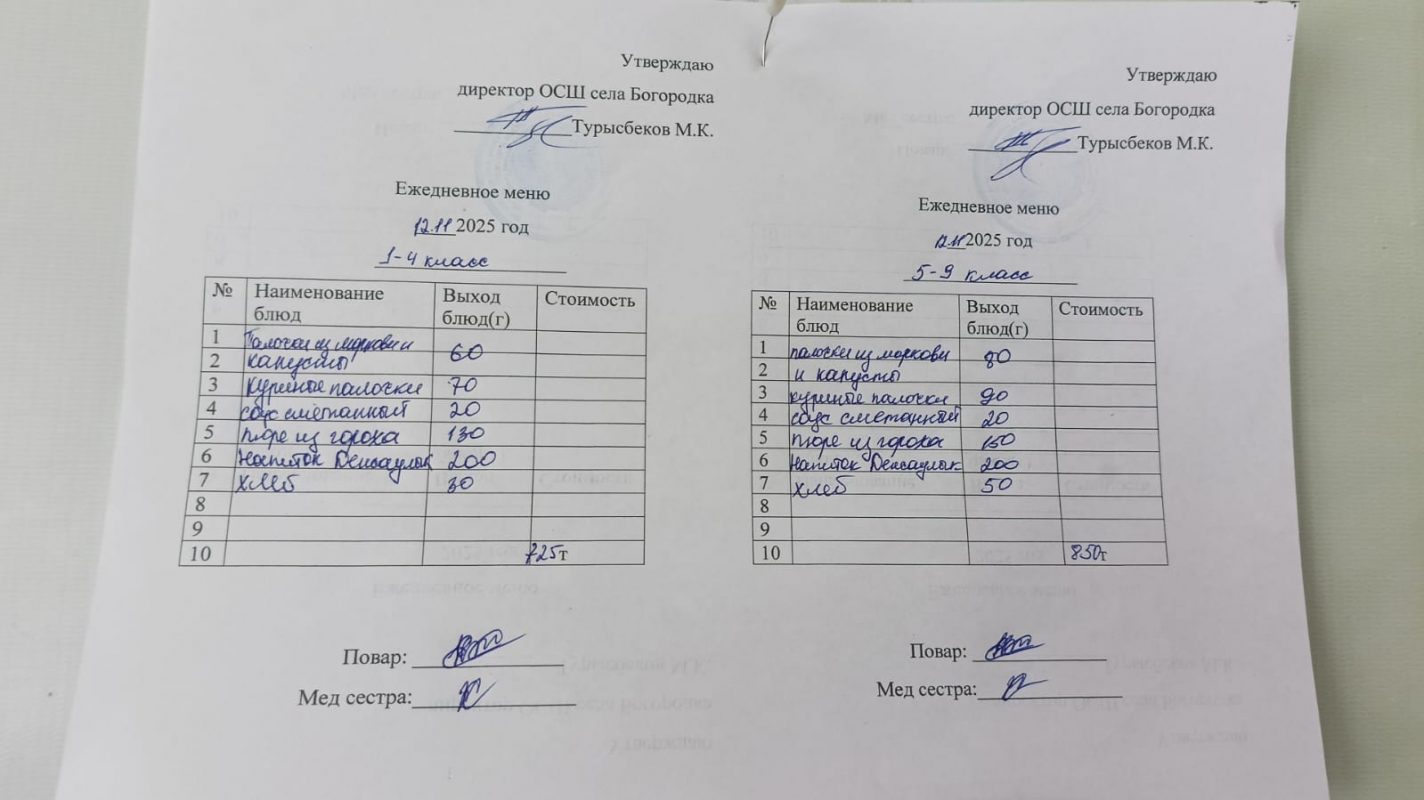 Утверждаю
директор ОСШ села Богородка
Турысбеков М.К.
Ежедневное меню
12.11 2025 год
1-4 класс
№ Наименование блюд Выход блюд(г) Стоимость
1 Палочки из моркови и
2 капусты 60
3 Куриные палочки 70
4 соус сметанный 20
5 пюре из гороха 130
6 Напиток Денсаулык 200
7 хлеб 30
8
9
10 725т
Повар:
Мед сестра:
Утверждаю
директор ОСШ села Богородка
Турысбеков М.К.
Ежедневное меню
12.11 2025 год
5-9 класс
№ Наименование блюд Выход блюд(г) Стоимость
1 палочки из моркови 80
2 и капусты
3 куриные палочки 90
4 соус сметанный 20
5 пюре из гороха 150
6 Напиток Денсаулык 200
7 хлеб 50
8
9
10 850т
Повар:
Мед сестра: